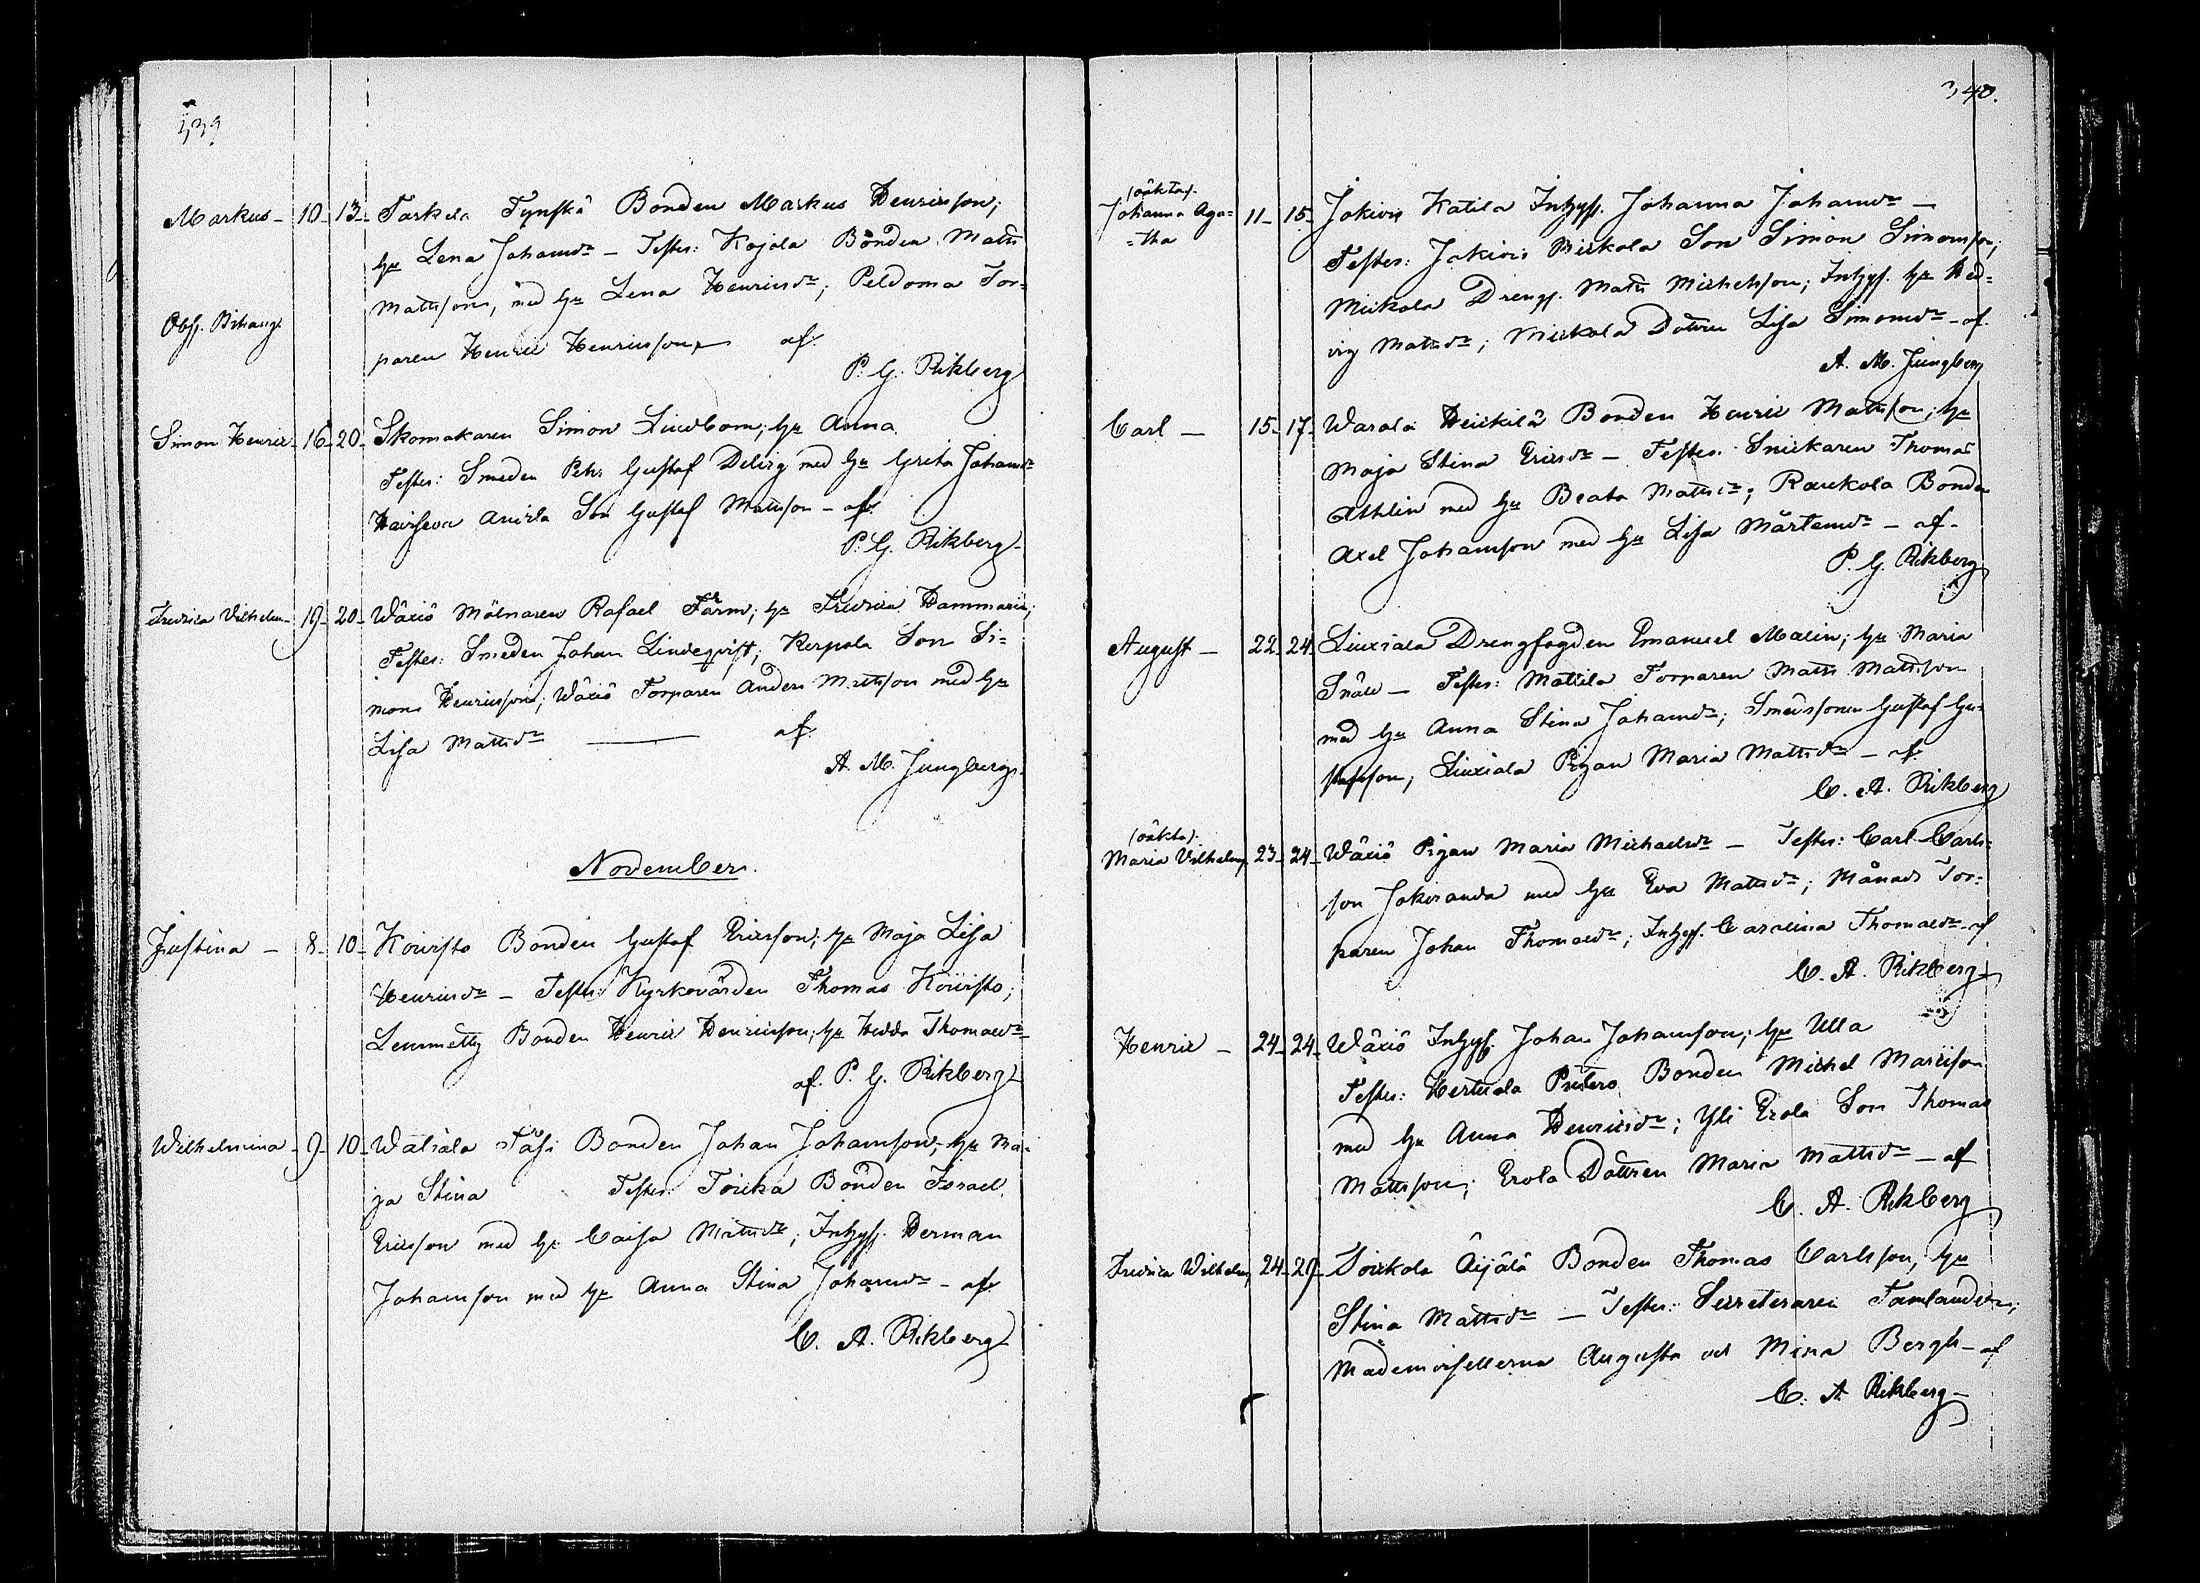 339
Markus - 10 - 13 - Tarkela Tynskä Bonden Markus Henricsson;
hu Lena Johansdr - Testes: Kojola Bonden Matts
Mattsson, med hu Lena Henricsdr; Peldoma Tor=
Obs. Bihang
paren Henric Henricsson - af
P. G. Rikberg
Simon Henric - 16 - 20 - Skomakaren Simon Lindbom; hu Anna
Testes: Smeden Pehr Gustaf Delirg med hu Greta Johansdr
Anirla Son Gustaf Mattsson - af
P. G. Rikberg
Fredrica Vilhelm - 19 - 20 - Wäxiö Mölnaren Rafael Färm; hu Fredrica Hammarin;
Testes: Smeden Johan Lindeqvist; Kerpola Son Si=
mon Henricsson; Wäxiö Torparen Anders Mattsson med hu
Lisa Mattsdr - af
A. M. Jungberg
November.
Justina - 8 - 10 - Koivisto Bonden Gustaf Ericsson; hu Maja Lisa
Henricsdr - Testes: Kyrkovärden Thomas Koivisto;
Lemmetty Bonden Henric Henricsson; hu Hedda Thomasdr
af P. G. Rikberg
Wilhelmina - 9 - 10 - Walsiala Täsi Bonden Johan Johansson; hu Ma=
ja Stina Testes: Torika Bonden Israel
Ericsson med hu Caisa Mattsdr; Inhys. Herman
Johansson med hu Anna Stina Johansdr - af
C. A. Rikberg
340.
(oäkta)
Johanna Aga= 11 - 15 - Jokivis Katila Inhys. Johanna Johansdr -
=tha
Testes: Jokivis Mickola Son Simon Simonsson;
Mickola Drengs. Matts Michelsson; Inhys. hu Hed=
vig Mattsdr; Mickola Dottren Lisa Simonsdr - af
A. M. Jungberg
Carl - 15 - 17 - Warala Heickilä Bonden Henric Mattsson; hu
Maja Stina Ericsdr - Testes: Snickaren Thomas
Athlin med hu Beata Mattsdr; Rauckola Bonden
Axel Johansson med hu Lisa Mårtensdr - af
P. G. Rikberg
August - 22 - 24 - Liuxiala Drengfogden Emanuel Malin; hu Maria
Snäll - Testes: Mattila Torparen Matts Mattsson
med hu Anna Stina Johansdr; Smedssonen Gustaf Gu=
stafsson; Liuxiala Pigan Maria Mattsdr - af
C. A. Rikberg
(oäkta)
Maria Vilhelm 23 - 24 - Wäxiö Pigan Maria Michaelsdr - Testes: Carl Carls=
son Jokiranda med hu Eva Mattsdr; Månads Tor=
paren Johan Thomasdr; Inhys. Carolina Thomasdr - af
C. A. Rikberg
Henric - 24 - 24 - Wäxiö Inhys. Johan Johansson; hu Ulla
Testes: Hertuala Bonden Michel Marcisson
med hu Anna Henricsdr; Yli Erola Son Thomas
Mattsson; Erola Dottren Maria Mattsdr - af
C. A. Rikberg
Fredrica Wilhelm 24 - 29 - Soickola Äijälä Bonden Thomas Carlsson; hu
Stina Mattsdr - Testes: Secreteraren Tamlander;
Mademoisellerna Augusta och Mina Bergh - af
C. A. Rikberg